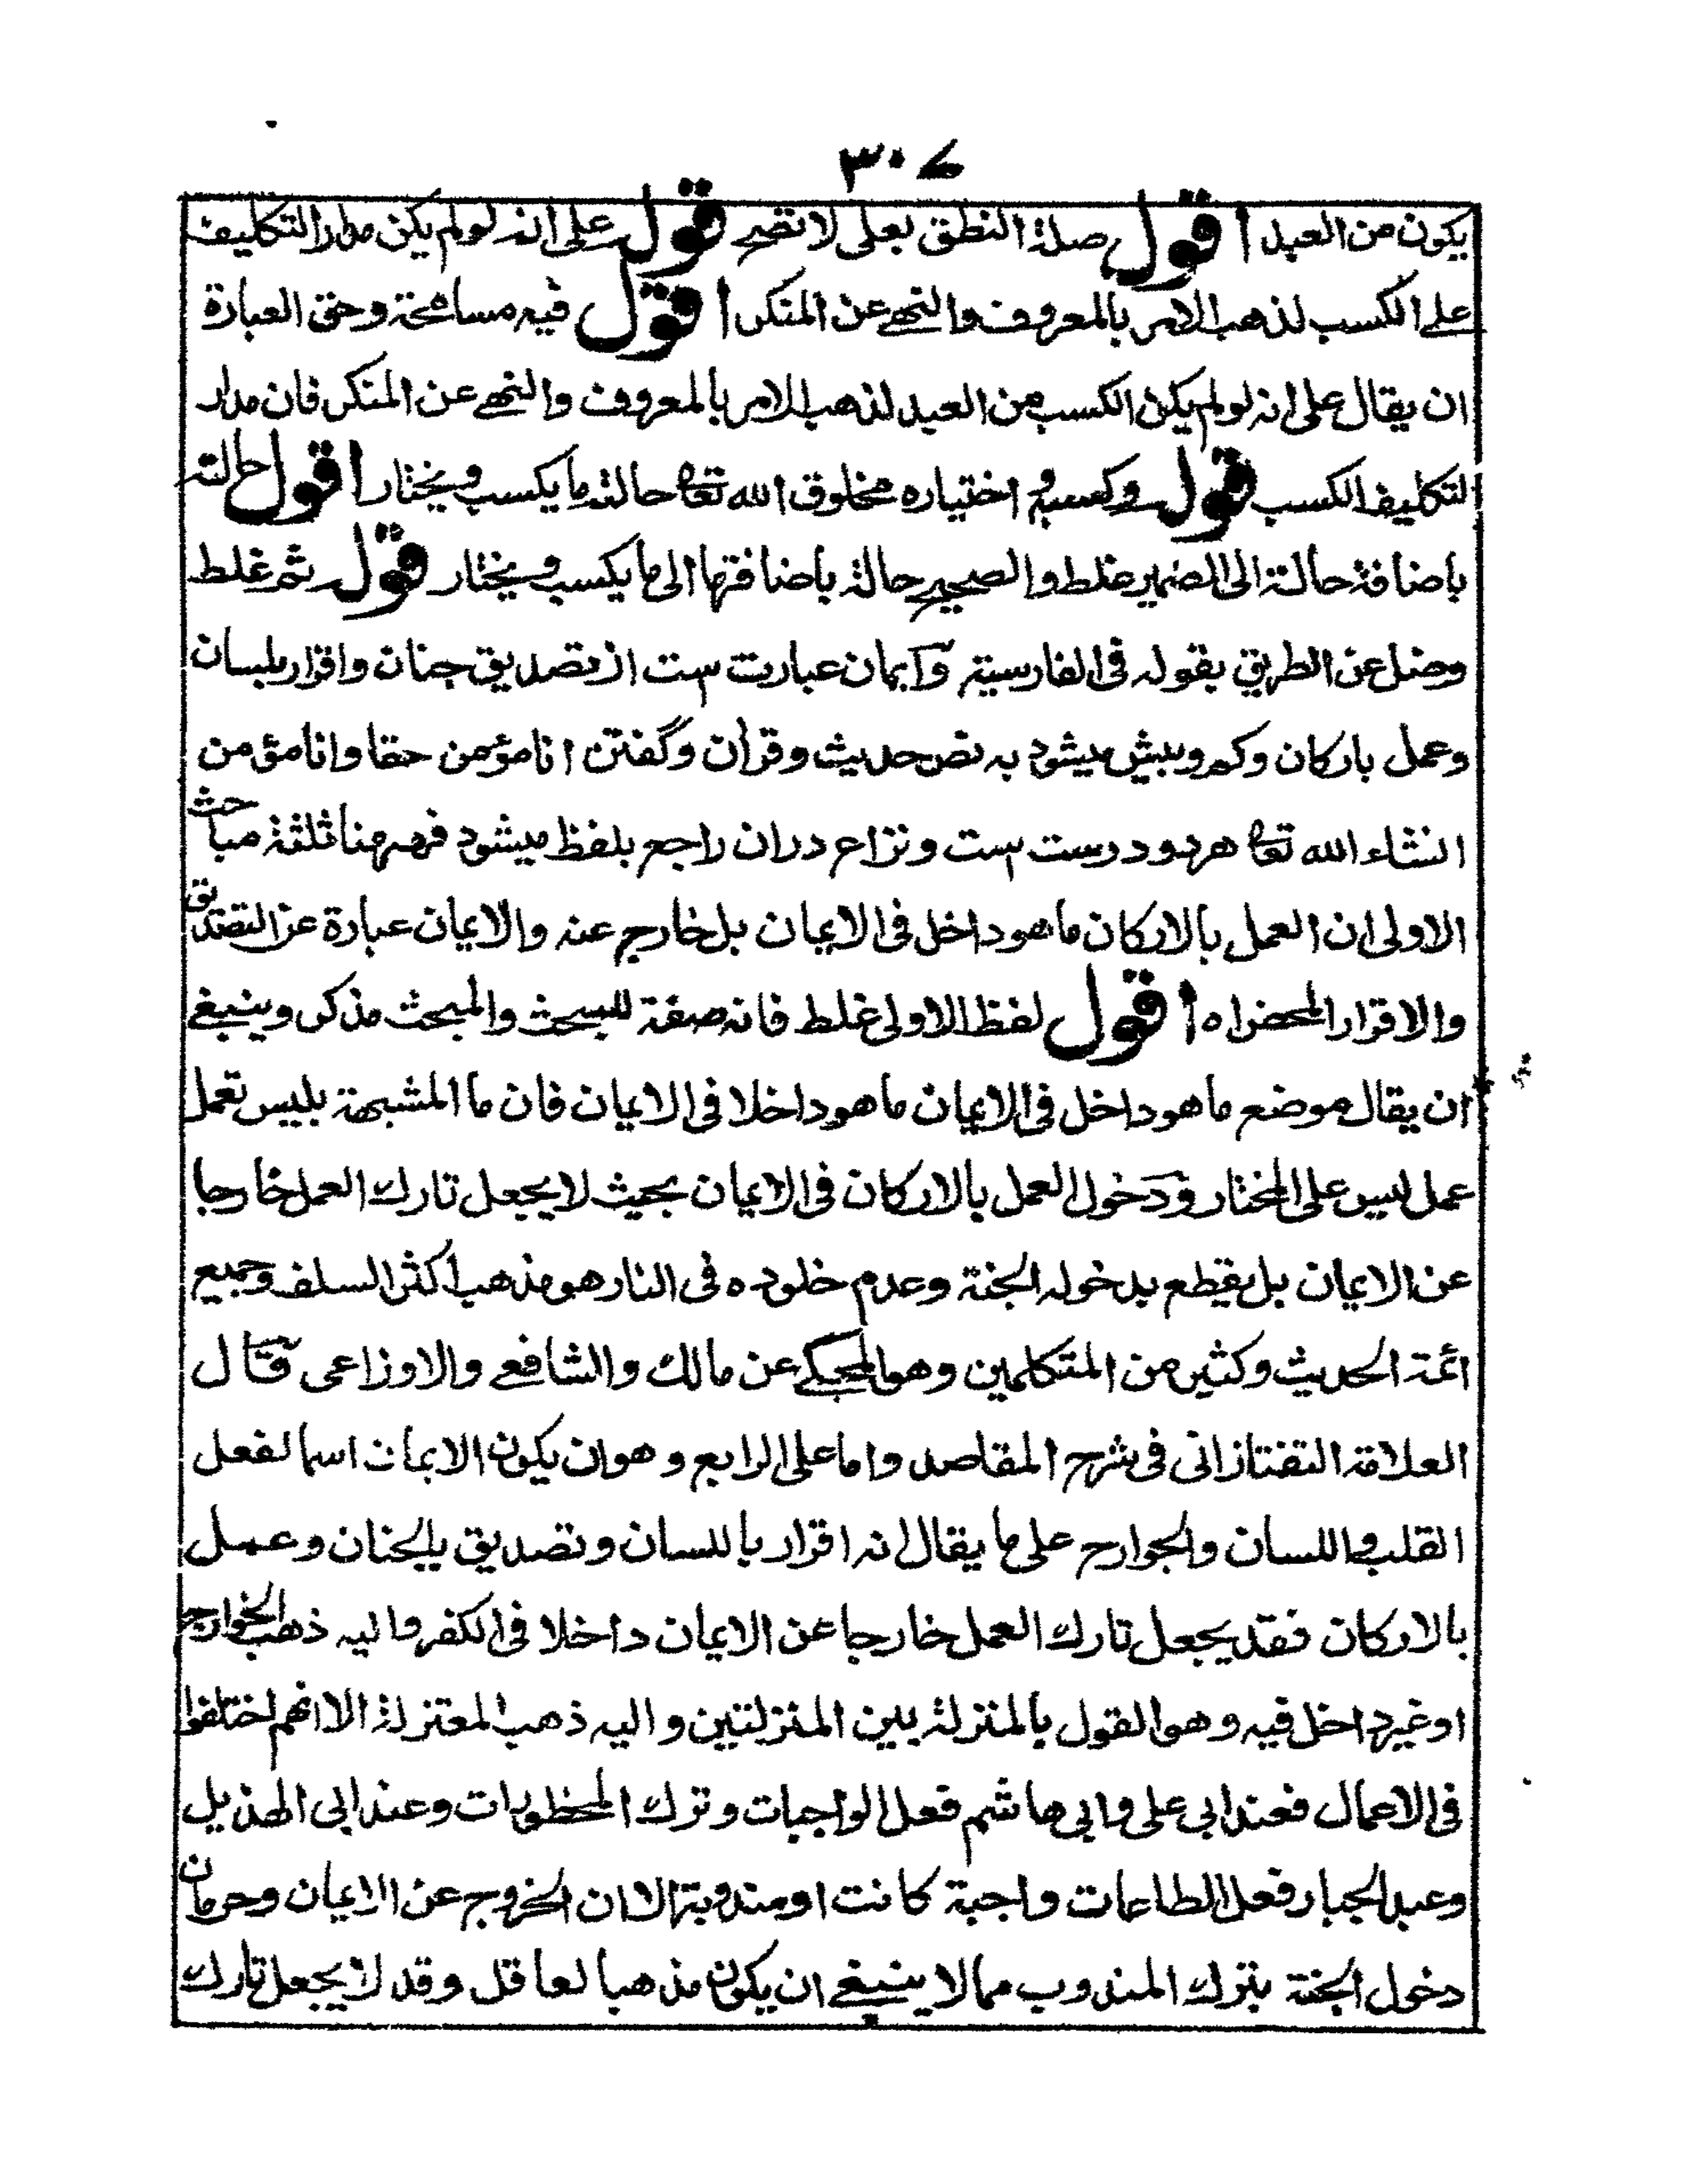 ٣٠٧
يكون من العبد اقول صلة النطق بعلى لا تصح قوله على انه لو لم يكن مدار التكليف
على الكسب لذهب الامر بالمعروف والنهے عن المنكر اقول فيه مسامحة وحق العبارة
ان يقال على انه لو لم يكن الكسب من العبد لذهب الامر بالمعروف والنهے عن المنكر فان مدار
لتكليف الكسب قوله وكسبه و اختياره مخلوق الله تعا حالته ما يكسب ويختار اقول حالته
باضافة حالة الى الضمير غلط والصحيح حالة باضافتها الى ما يكسب ويختار قوله ثم غلط
وضل عن الطريق بقوله فى الفارسية وايمان عبارت ست از تصديق جنان واقرار بلسان
وعمل باركان وكم وبيش ميشود به نص حديث وقران وگفتن انا مؤمن حقا وانا مؤمن
انشاء الله تعا هر دو درست ست ونزاع دران راجع بلفظ ميشود فههنا ثلثة مباحث
الاولى ان العمل بالاركان ما هو داخل فى الايمان بل خارج عنه والايمان عبارة عن التصديق
والاقرار المحض اه اقول لفظ الاولى غلط فانه صفة للبحث والمبحث مذكر وينبغے
ان يقال موضع ما هو داخل فى الايمان ما هو داخلا فى الايمان فان ما المشبهة بليس تعمل
عمل ليس على المختار ودخول العمل بالاركان فى الايمان بحيث لا يجعل تارك العمل خارجا
عن الايمان بل يقطع بدخوله الجنة وعدم خلوده فى النار هو مذهب اكثر السلف وجميع
ائمة الحديث وكثير من المتكلمين وهو المحكے عن مالك والشافعے والاوزاعى قال
العلامة التفتازانى فى شرح المقاصد واما على الرابع و هو ان يكون الايمان اسما لفعل
القلب واللسان والجوارح على ما يقال انه اقرار باللسان وتصديق بالجنان وعمل
بالاركان فقد يجعل تارك العمل خارجا عن الايمان داخلا فى الكفر واليه ذهب الخوارج
او غير داخل فيه وهو القول بالمنزلة بين المنزلتين واليه ذهب المعتزلة الا انهم اختلفوا
فى الاعمال فعند ابى على وابى هاشم فعل الواجبات وترك المحظورات وعند ابى الهذيل
وعبد الجبار فعل الطاعات واجبة كانت او مندوبة الا ان الخروج عن الايمان وحرمان
دخول الجنة بترك المندوب مما لا ينبغے ان يكون مذهبا لعاقل وقد لا يجعل تارك